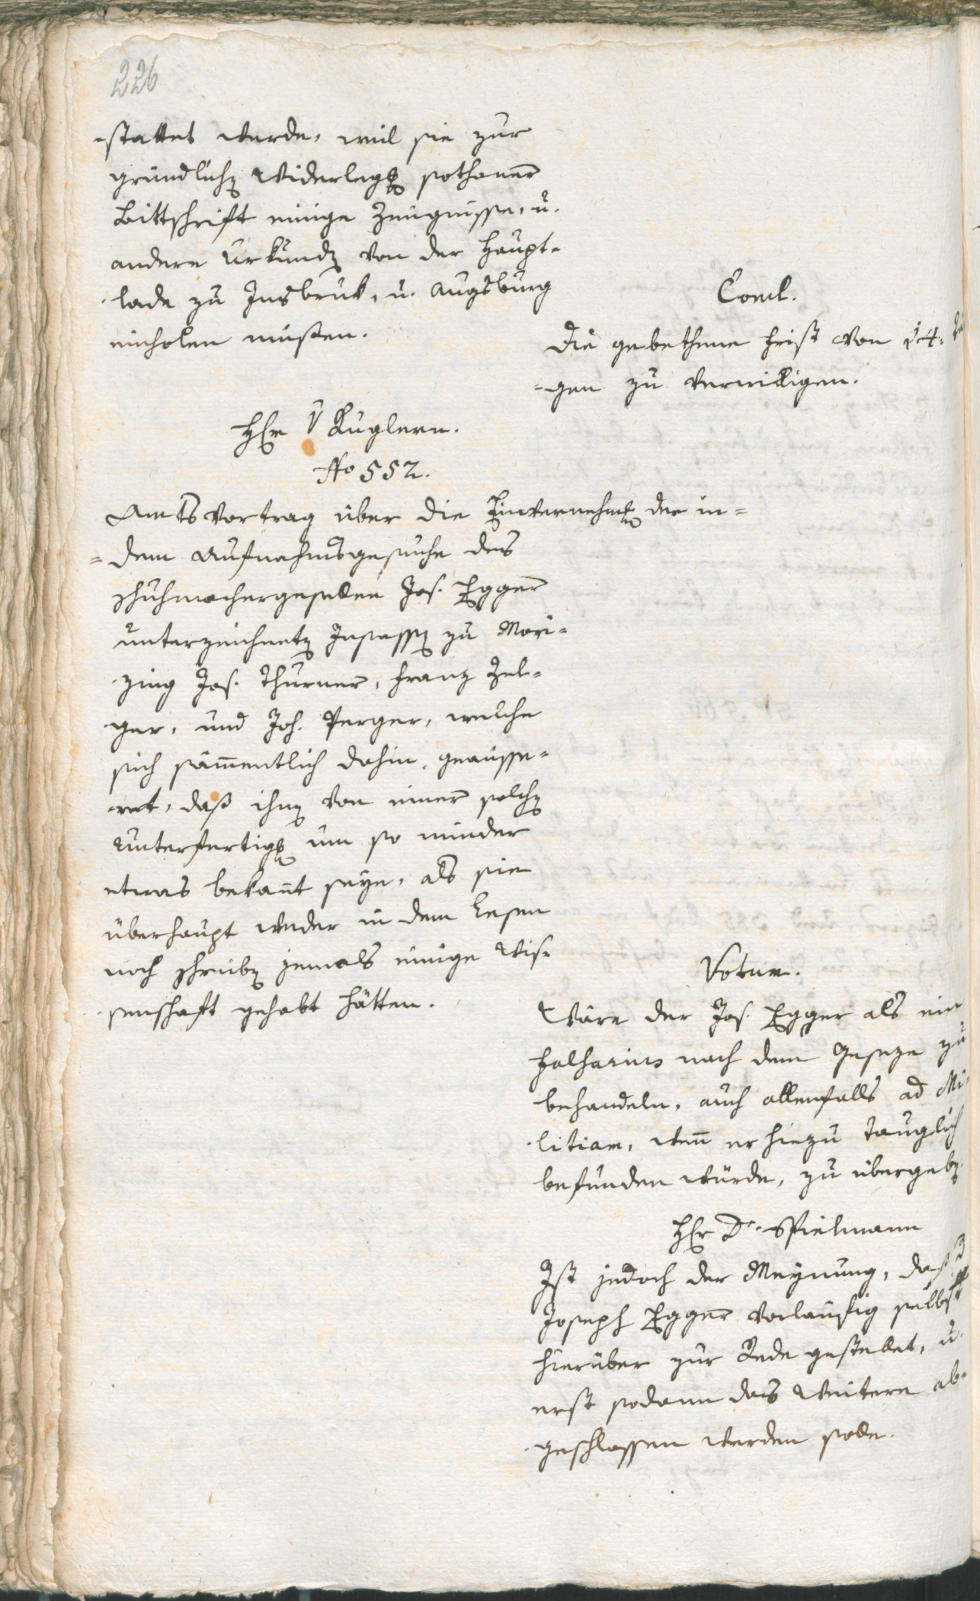 226
-stattet werde, weil sie zur
gründlich[en] Widerleg[un]g sothaner
Bittschrift einige Zeugnisse, u.
andere Urkund[en] von der Haupt-
lade zu Insbruk, u. Augsburg
einholen müßen.
Concl.
Die gebethene Frist von 14. Ta
-gen zu verwilligen.
H[er]r v Kuglern.
No 552.
Amts Vortrag über die Einvernehm[un]g der in-
-dem Aufnahmsgesuche des
Schuhmachergesellen Jos. Egger
unterzeichnet[en] Insass[en] zu Mori-
zing Jos. Thurner, Franz Zel-
ger, und Joh. Perger, welche
sich sam̄entlich dahin geäusse-
ret, daß ihn[en] von einer solch[en]
Unterfertig[un]g um so minder
etwas bekañt seye, als sie
überhaupt weder in dem Lesen
noch Schreib[en] jemals einige Wis-
senschaft gehabt hätten.
Votum.
Wäre der Jos. Egger als ein
Falsarius nach dem Geseze zu
behandeln, auch allenfalls ad Mi-
litiam, weñ er hiezu tauglich
befunden würde, zu übergeb[en].
H[er]r Dr. Spielmann
Ist jedoch der Meynung, daß
Joseph Egger vorläufig selbst
hierüber zur Rede gestellet, u.
erst sodann das Weitere ab-
geschlossen werden solle.